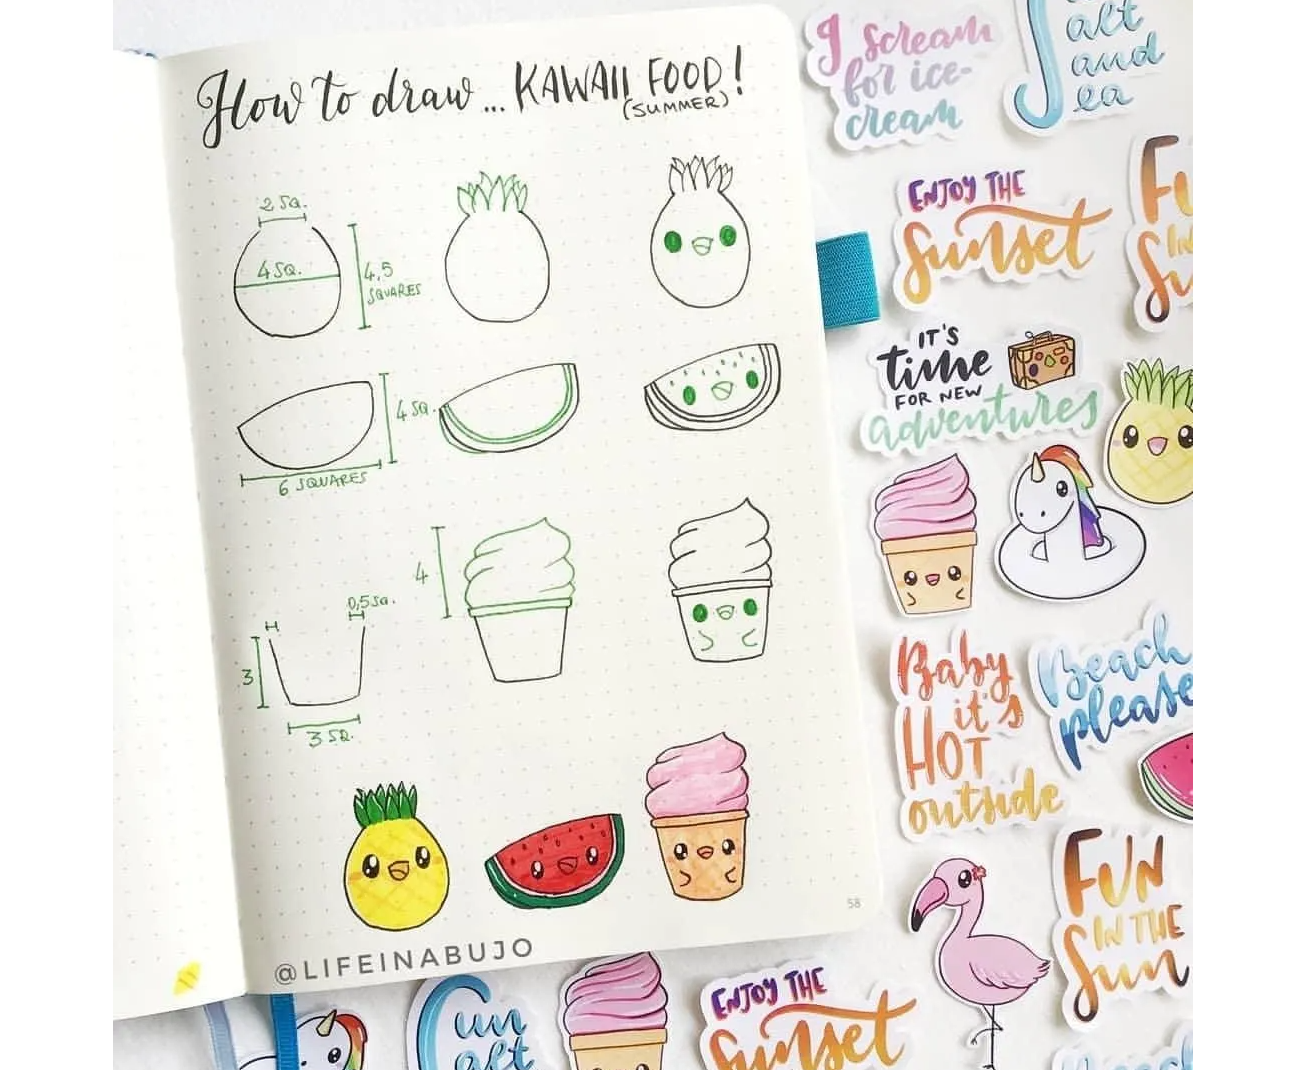 How to draw... KAWAII FOOD!
(SUMMER)
2 SQ.
4 SQ.
4,5
SQUARES
4 SQ.
6 SQUARES
4
0,5 SQ.
3
3 SQ.
58
@LIFEINABUJO
I scream
for ice-
cream
alt
and
ea
ENJOY THE
Sunset
IT'S
time
FOR NEW
adventures
Baby
it's
HOT
outside
Beach
please
FUN
IN THE
Sun
ENJOY THE
Sunset